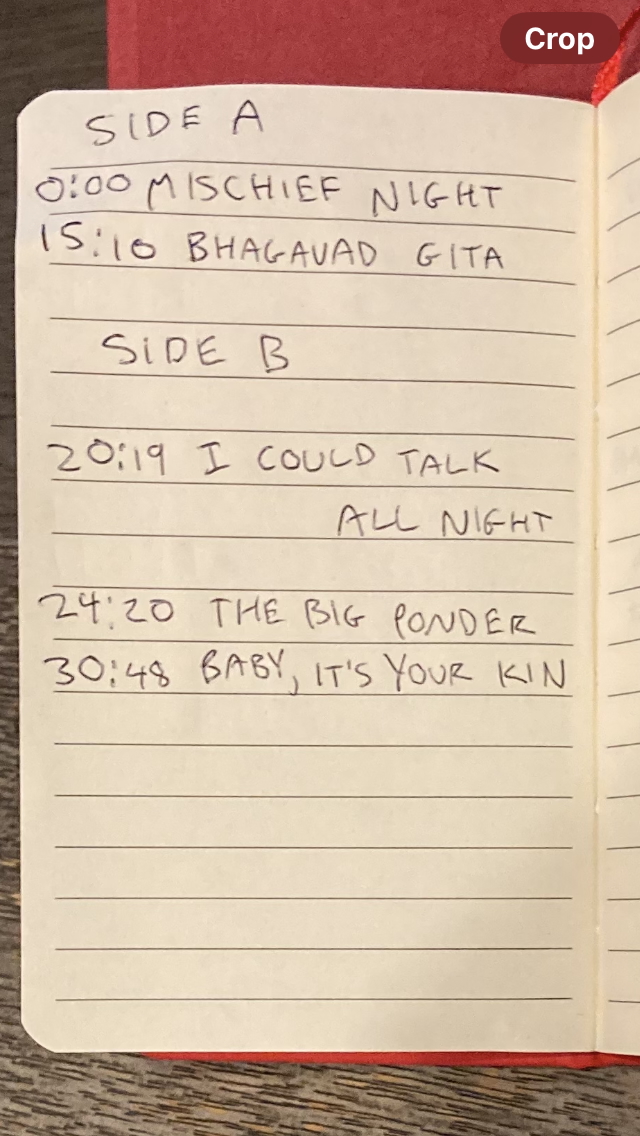 Crop
SIDE A
0:00 MISCHIEF NIGHT
15:10 BHAGAVAD GITA
SIDE B
20:19 I COULD TALK
ALL NIGHT
24:20 THE BIG PONDER
30:48 BABY, IT'S YOUR KIN